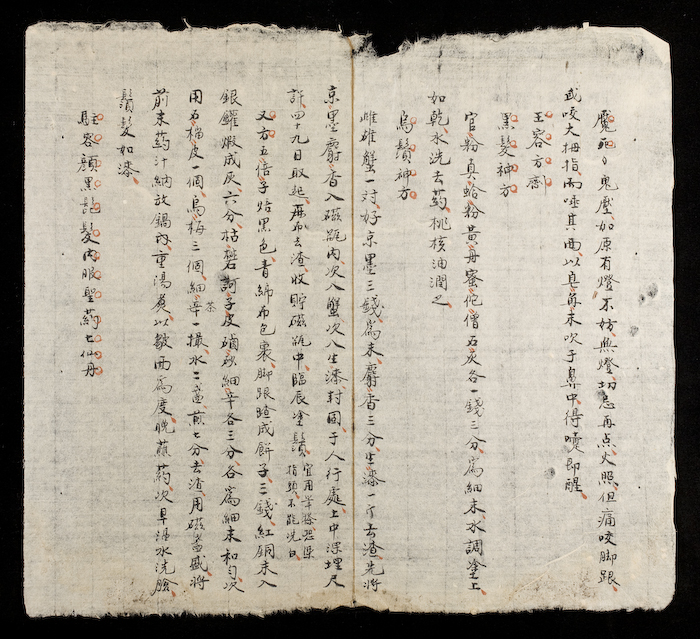 魘死〻鬼壓如原有燈不妨無燈切忌再点火照但痛咬脚跟
或咬大拇指而唾其面以真再末吹于鼻中得嚏即醒
玉容方劑
黑髮神方
官粉真蛤粉黄丹蜜佗僧石灰各一錢三分為細末水調塗上
如乾水洗去葯桃核油潤之
烏鬚神方
雌雄蟹一对好京墨三錢為末麝香三分生漆一斤去渣先將
京墨麝香入磁瓶内次入蟹次入生漆封固于人行處上中深埋尺
許四十九日取起麻布去渣收貯磁瓶中臨辰塗鬚宜用筆搽恐染
指頭不能洗白
又方五倍子焙黑色青綿布包裹脚跟蹅成餅子三錢紅銅末入
銀鑵煆成灰六分枯礬訶子皮硇砂細辛各三分各為細末和匀次
用石榴皮一個烏梅三個細茶一撮水二盞煎七分去渣用磁盞盛將
前末葯汁納放鍋内重湯煮以皺面為度晚蘸葯次早温水洗臉
鬚髮如漆
駐容顔黑鬚髮内服聖葯七仙丹